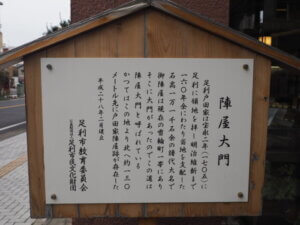 陣屋大門
足利戸田家は宝永二年(一七〇五)に
足利に領地を拝し明治維新まで
一六〇年余にわたり当地を支配した
石高一万一千石余の譜代大名で
御陣屋は現在の雪輪町一帯にあり
そこに大門があったのでこの通は
陣屋大門と呼ばれている
かつてはこの地より北へ約一三〇
メートル先に戸田家陣屋跡が存在した
平成二十八年二月建立
足利市教育委員会
足利市民文化財団